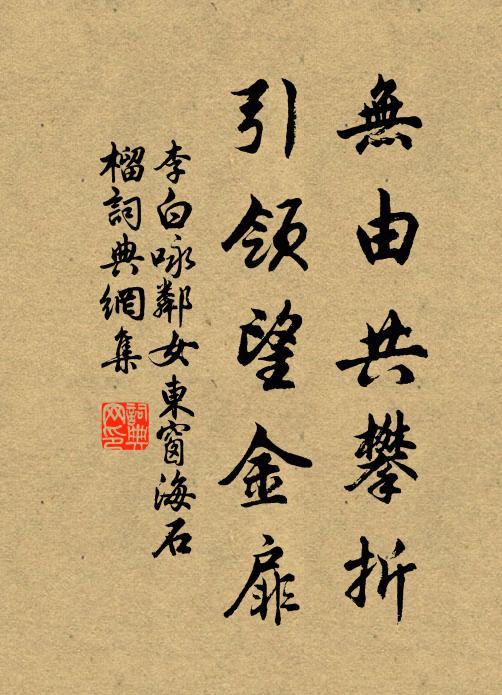 無由共攀折
引領望金扉
李白咏鄰女東窗海石
榴詞典網集
詞典
网印